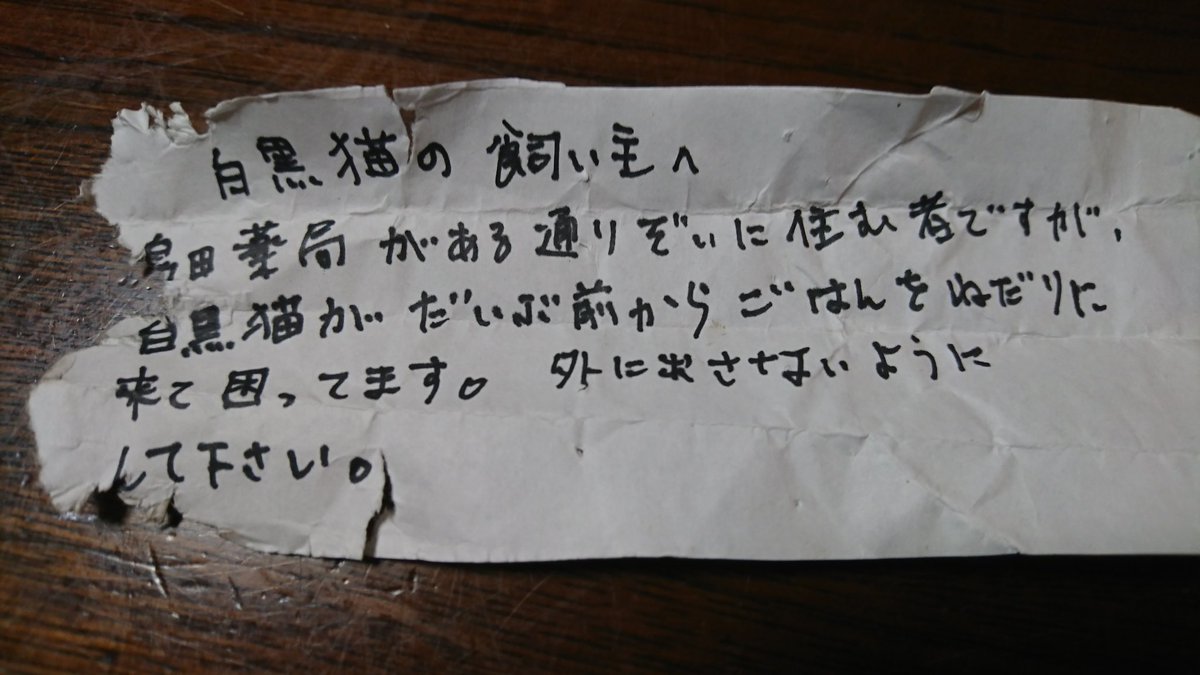 白黒猫の飼い主へ
島田薬局がある通りぞいに住む者ですが、
白黒猫がだいぶ前からごはんをねだりに
来て困ってます。 外に出させないように
して下さい。